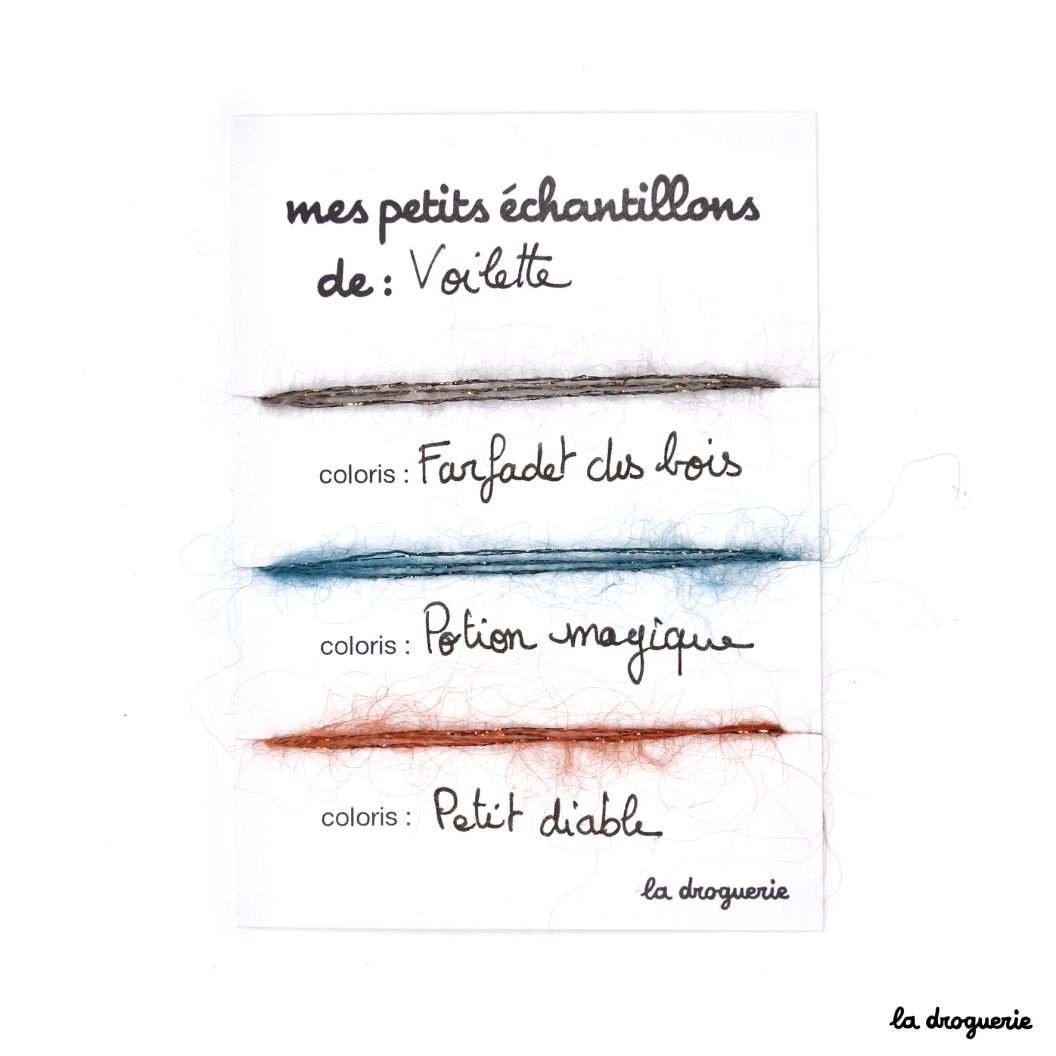 mes petits échantillons
de : Voilette
coloris : Farfadet des bois
coloris : Potion magique
coloris : Petit diable
la droguerie
la droguerie